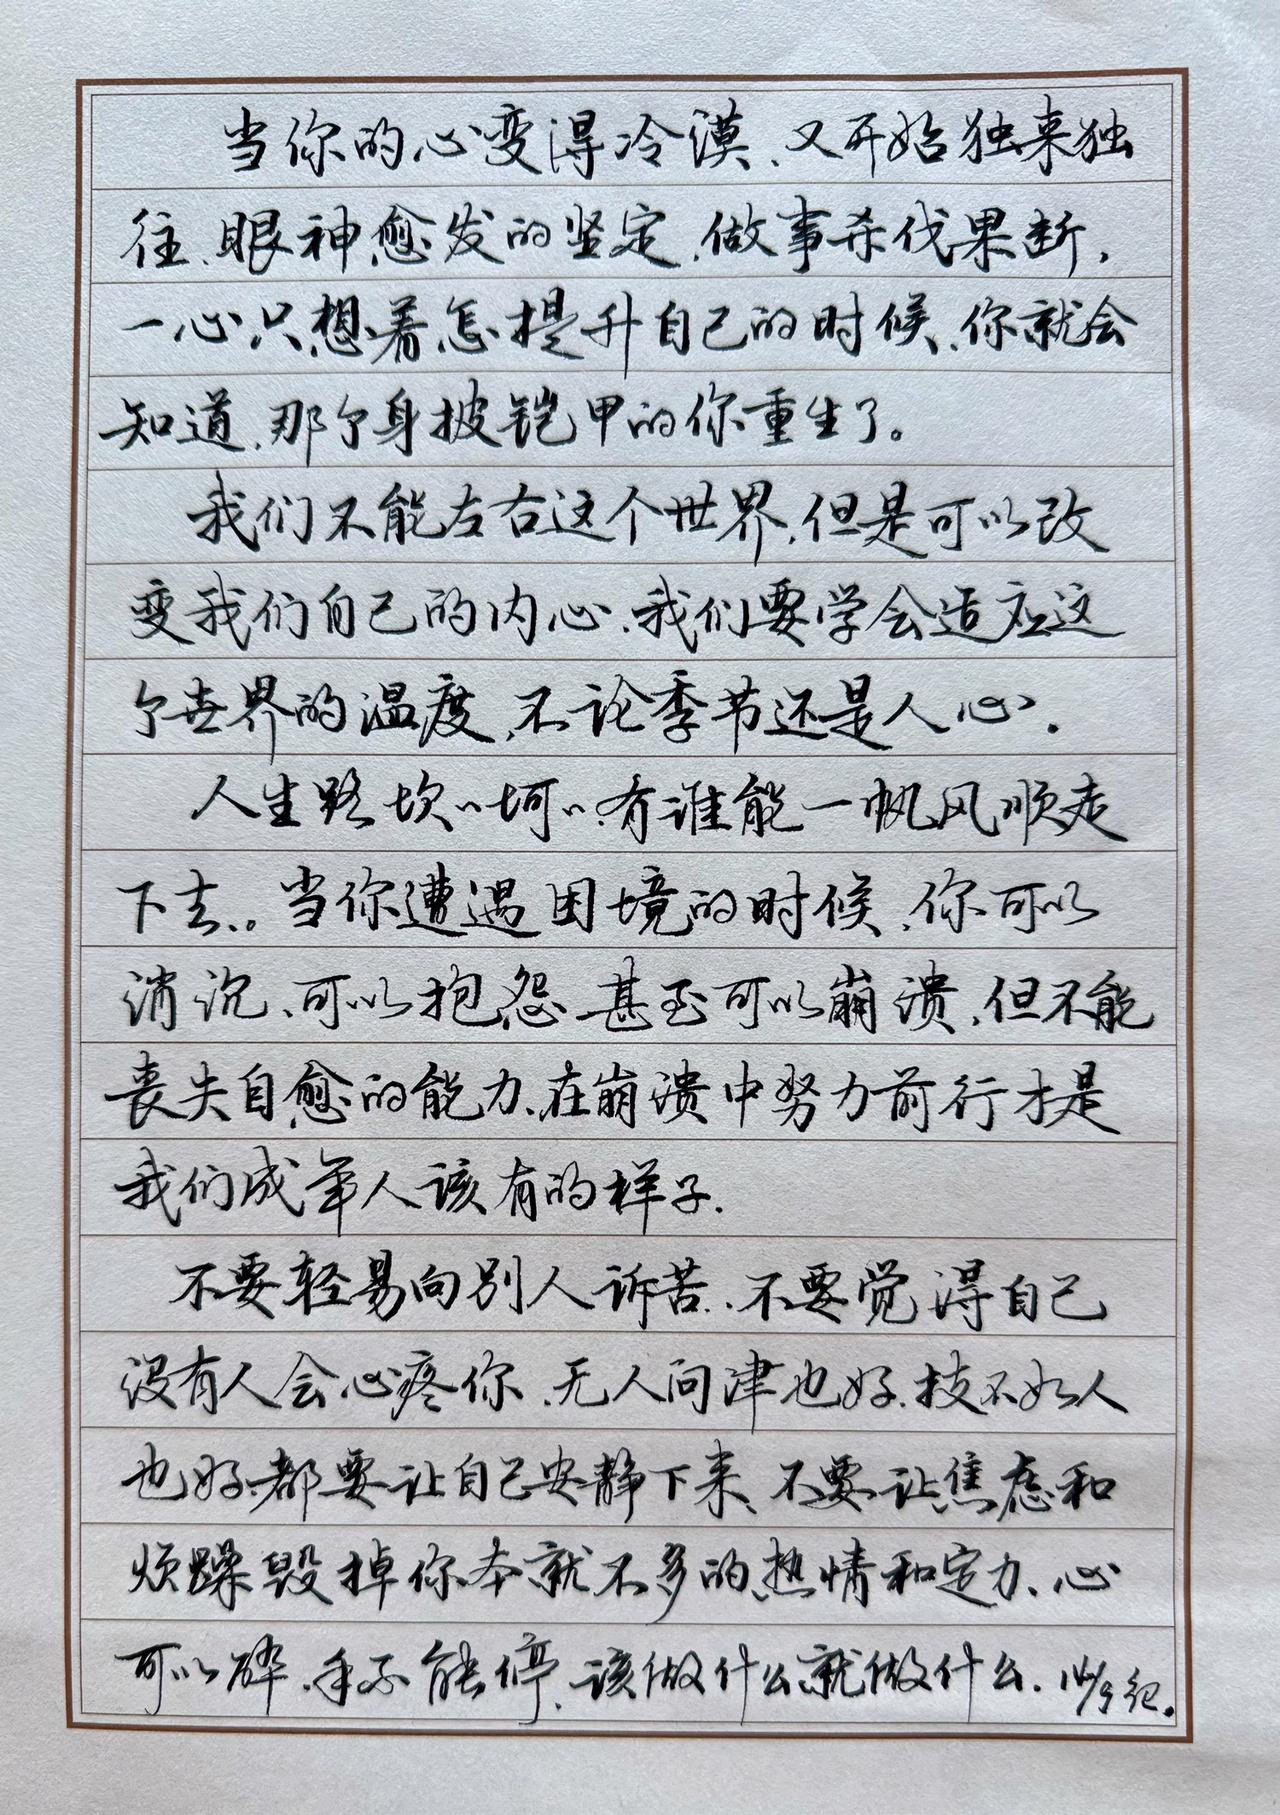 当你的心变得冷漠、又开始独来独
往、眼神愈发的坚定、做事杀伐果断,
一心只想着怎提升自己的时候、你就会
知道、那个身披铠甲的你重生了。
我们不能左右这个世界、但是可以改
变我们自己的内心、我们要学会适应这
个世界的温度、不论季节还是人心.
人生路坎〃坷〃、有谁能一帆风顺走
下去。当你遭遇困境的时候、你可以
消沉、可以抱怨 甚至可以崩溃、但不能
丧失自愈的能力、在崩溃中努力前行才是
我们成年人该有的样子.
不要轻易向别人诉苦、不要觉得自己
没有人会心疼你、无人问津也好、技不如人
也好、都要让自己安静下来、不要让焦虑和
烦躁毁掉你本就不多的热情和定力、心
可以碎、手不能停、该做什么就做什么.